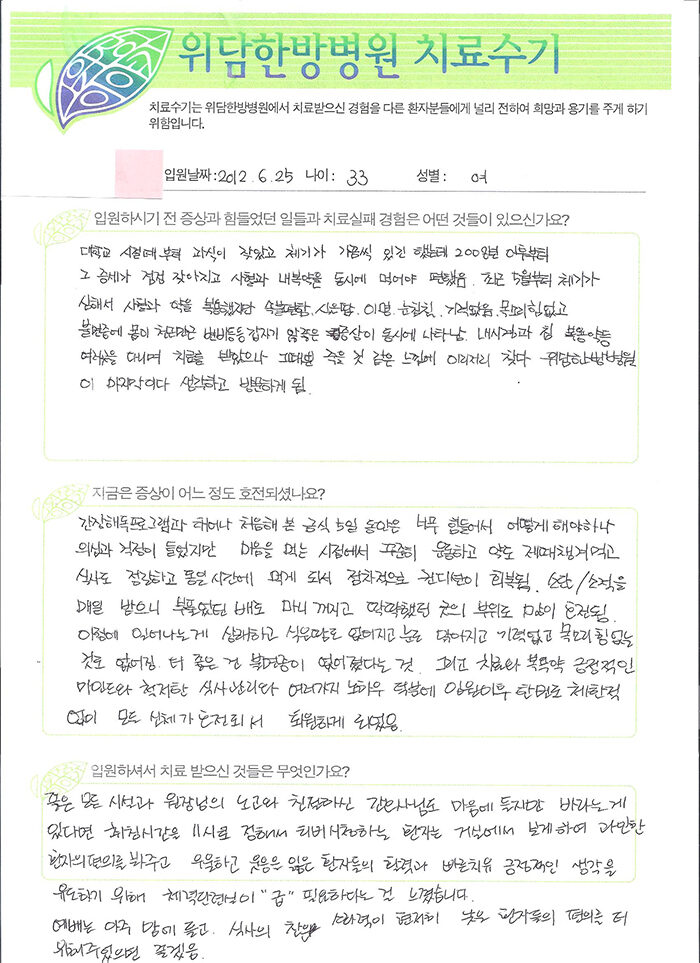 위담한방병원 치료수기
치료수기는 위담한방병원에서 치료받으신 경험을 다른 환자분들에게 널리 전하여 희망과 용기를 주게 하기
위함입니다.
입원날짜:2012. 6. 25 나이: 33 성별: 여
입원하시기 전 증상과 힘들었던 일들과 치료실패 경험은 어떤 것들이 있으신가요?
대학교 시절때부터 과식이 잦았고 체기가 가끔씩 있긴 했는데 2008년 이후부터
그 증세가 점점 잦아지고 사혈과 내복약을 동시에 먹어야 편했음. 최근 5월부터 체기가
심해서 사혈과 약을 복용했지만 식은땀. 이명. 눈침침. 기력없음. 목소리힘없고
불면증에 몸이 천근만근 변비등등 갑자기 않좋은 증상이 동시에 나타남. 내시경과 침 복용약등
여러곳을 다니며 치료를 받았으나 그때뿐 죽을 것 같은 느낌에 이리저리 찾다 위담한방병원
이 마지막이다 생각하고 방문하게 됨.
지금은 증상이 어느 정도 호전되셨나요?
간장해독프로그램과 태어나 처음해 본 금식 5일 동안은 너무 힘들어서 어떻게 해야하나
의심과 걱정이 들었지만 마음을 먹는 시점에서 꾸준히 운동하고 약도 제때챙겨먹고
식사도 정갈하고 똑같은 시간에 먹게 되서 점차적으로 컨디션이 회복됨. 소적을
매일 받으니 부풀었던 배도 많이 꺼지고 딱딱했던 곳의 부위도 많이 호전됨.
아침에 일어나는게 상쾌하고 식은땀도 없어지고 눈도 맑아지고 기력없고 목소리힘없는
것도 없어짐. 더 좋은 건 불면증이 없어졌다는 것. 그리고 치료와 복용약 긍정적인
마인드와 철저한 식사관리다 여러가지 노하우 덕분에 입원이후 한번도 체한적
없이 모든 신체가 호전되서 퇴원하게 되었음.
입원하셔서 치료 받으신 것들은 무엇인가요?
좋은 모든 시설과 원장님의 노고와 친절하신 간호사님도 마음에 들지만 바라는게
있다면 취침시간을 11시로 정해서 티비시청하는 환자는 거실에서 보게하여 과민한
환자의편의를 봐주고 우울하고 웃음을 잃은 환자들의 활력과 빠른치유 긍정적인 생각을
유도하기 위해 체력단련실이 "급" 필요하다는 것 느꼈습니다.
예배는 아주 맘에 들고. 식사의 찬은 현저히 낮은 환자들의 편의를 더
위해주었으면 좋겠음.